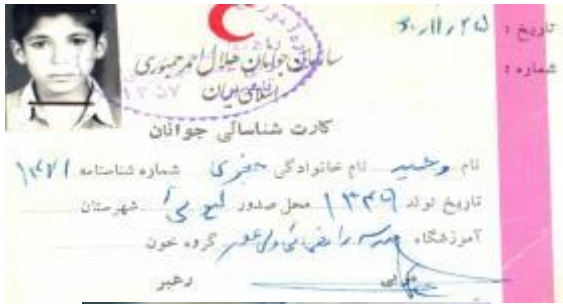 تاریخ :
شماره :
سازمان جوانان هلال احمر جمهوری
اسلامی ایران
۱۳۵۷
کارت شناسائی جوانان
نام وحید نام خانوادگی جعفری شماره شناسنامه ۱۴۷۱
تاریخ تولد ۱۳۴۹ محل صدور شهرستان
آموزشگاه مدرسه راهنمائی ولی عصر گروه خون
مربی رهبر